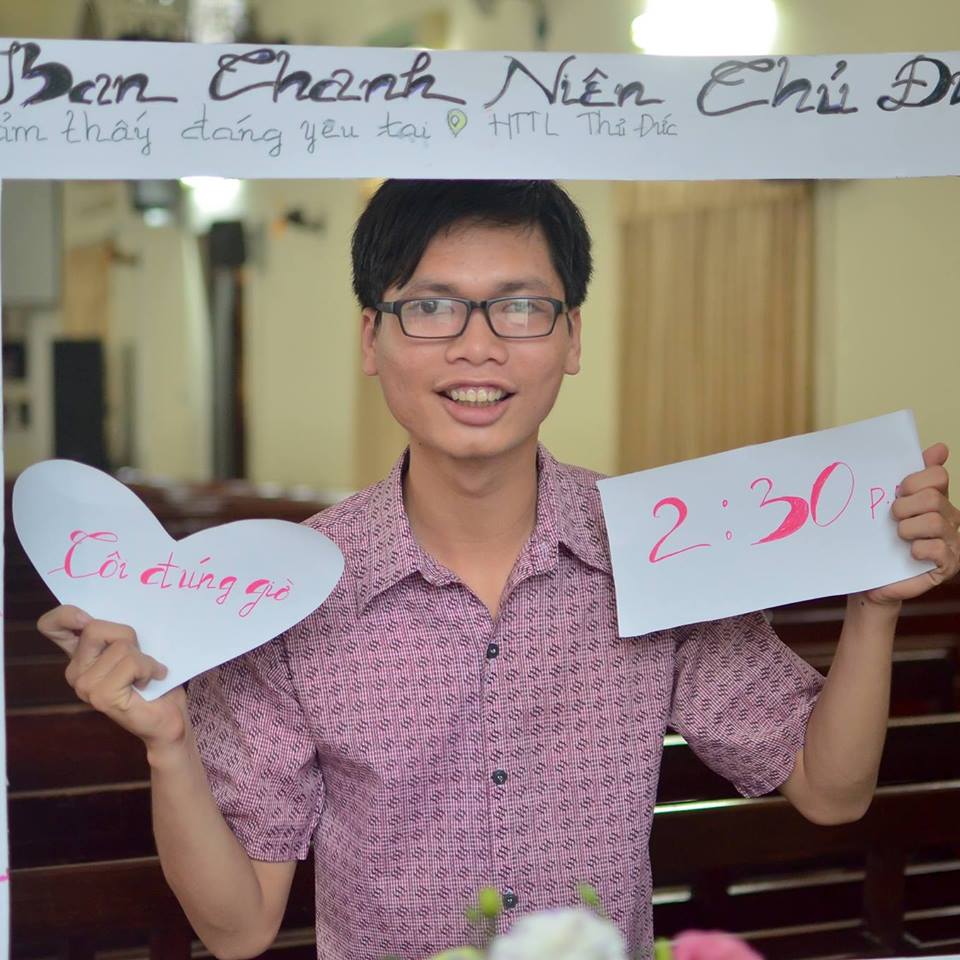 Ban Thanh Niên Thủ Đứ
ảm thấy đáng yêu tại HTTL Thủ Đức
Tôi đúng giờ
2:30 P.